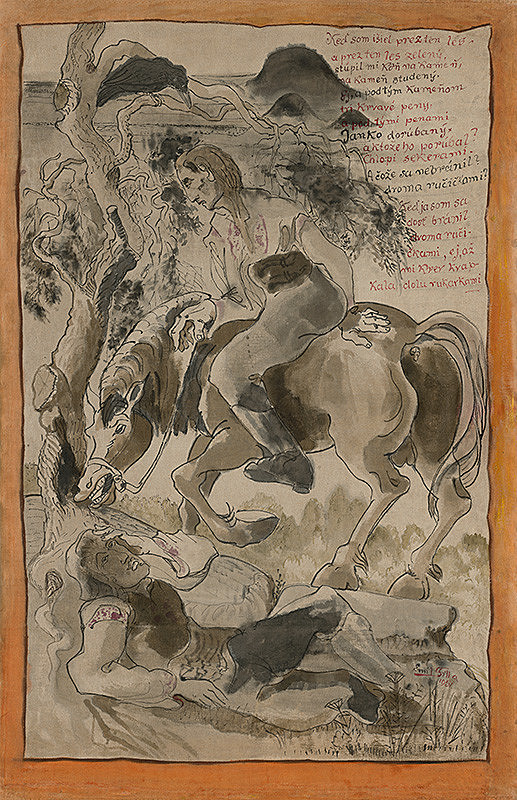 Keď som išiel prez ten les -
a prez ten les zelený,
stúpil mi kôň na kameň,
na kameň studený.
Ej, a pod tým kameňom
tri krvavé peny;
a pod tými penami
Janko dorúbaný,
a ktože ho porúbal?
Chlopi sekerami.
A čože sa nebránil?
dvoma ručičkami?
Keď ja som sa
dosť bránil
dvoma ruči-
čkami, ej, až
mi krev krap-
kala dolu rukávkami